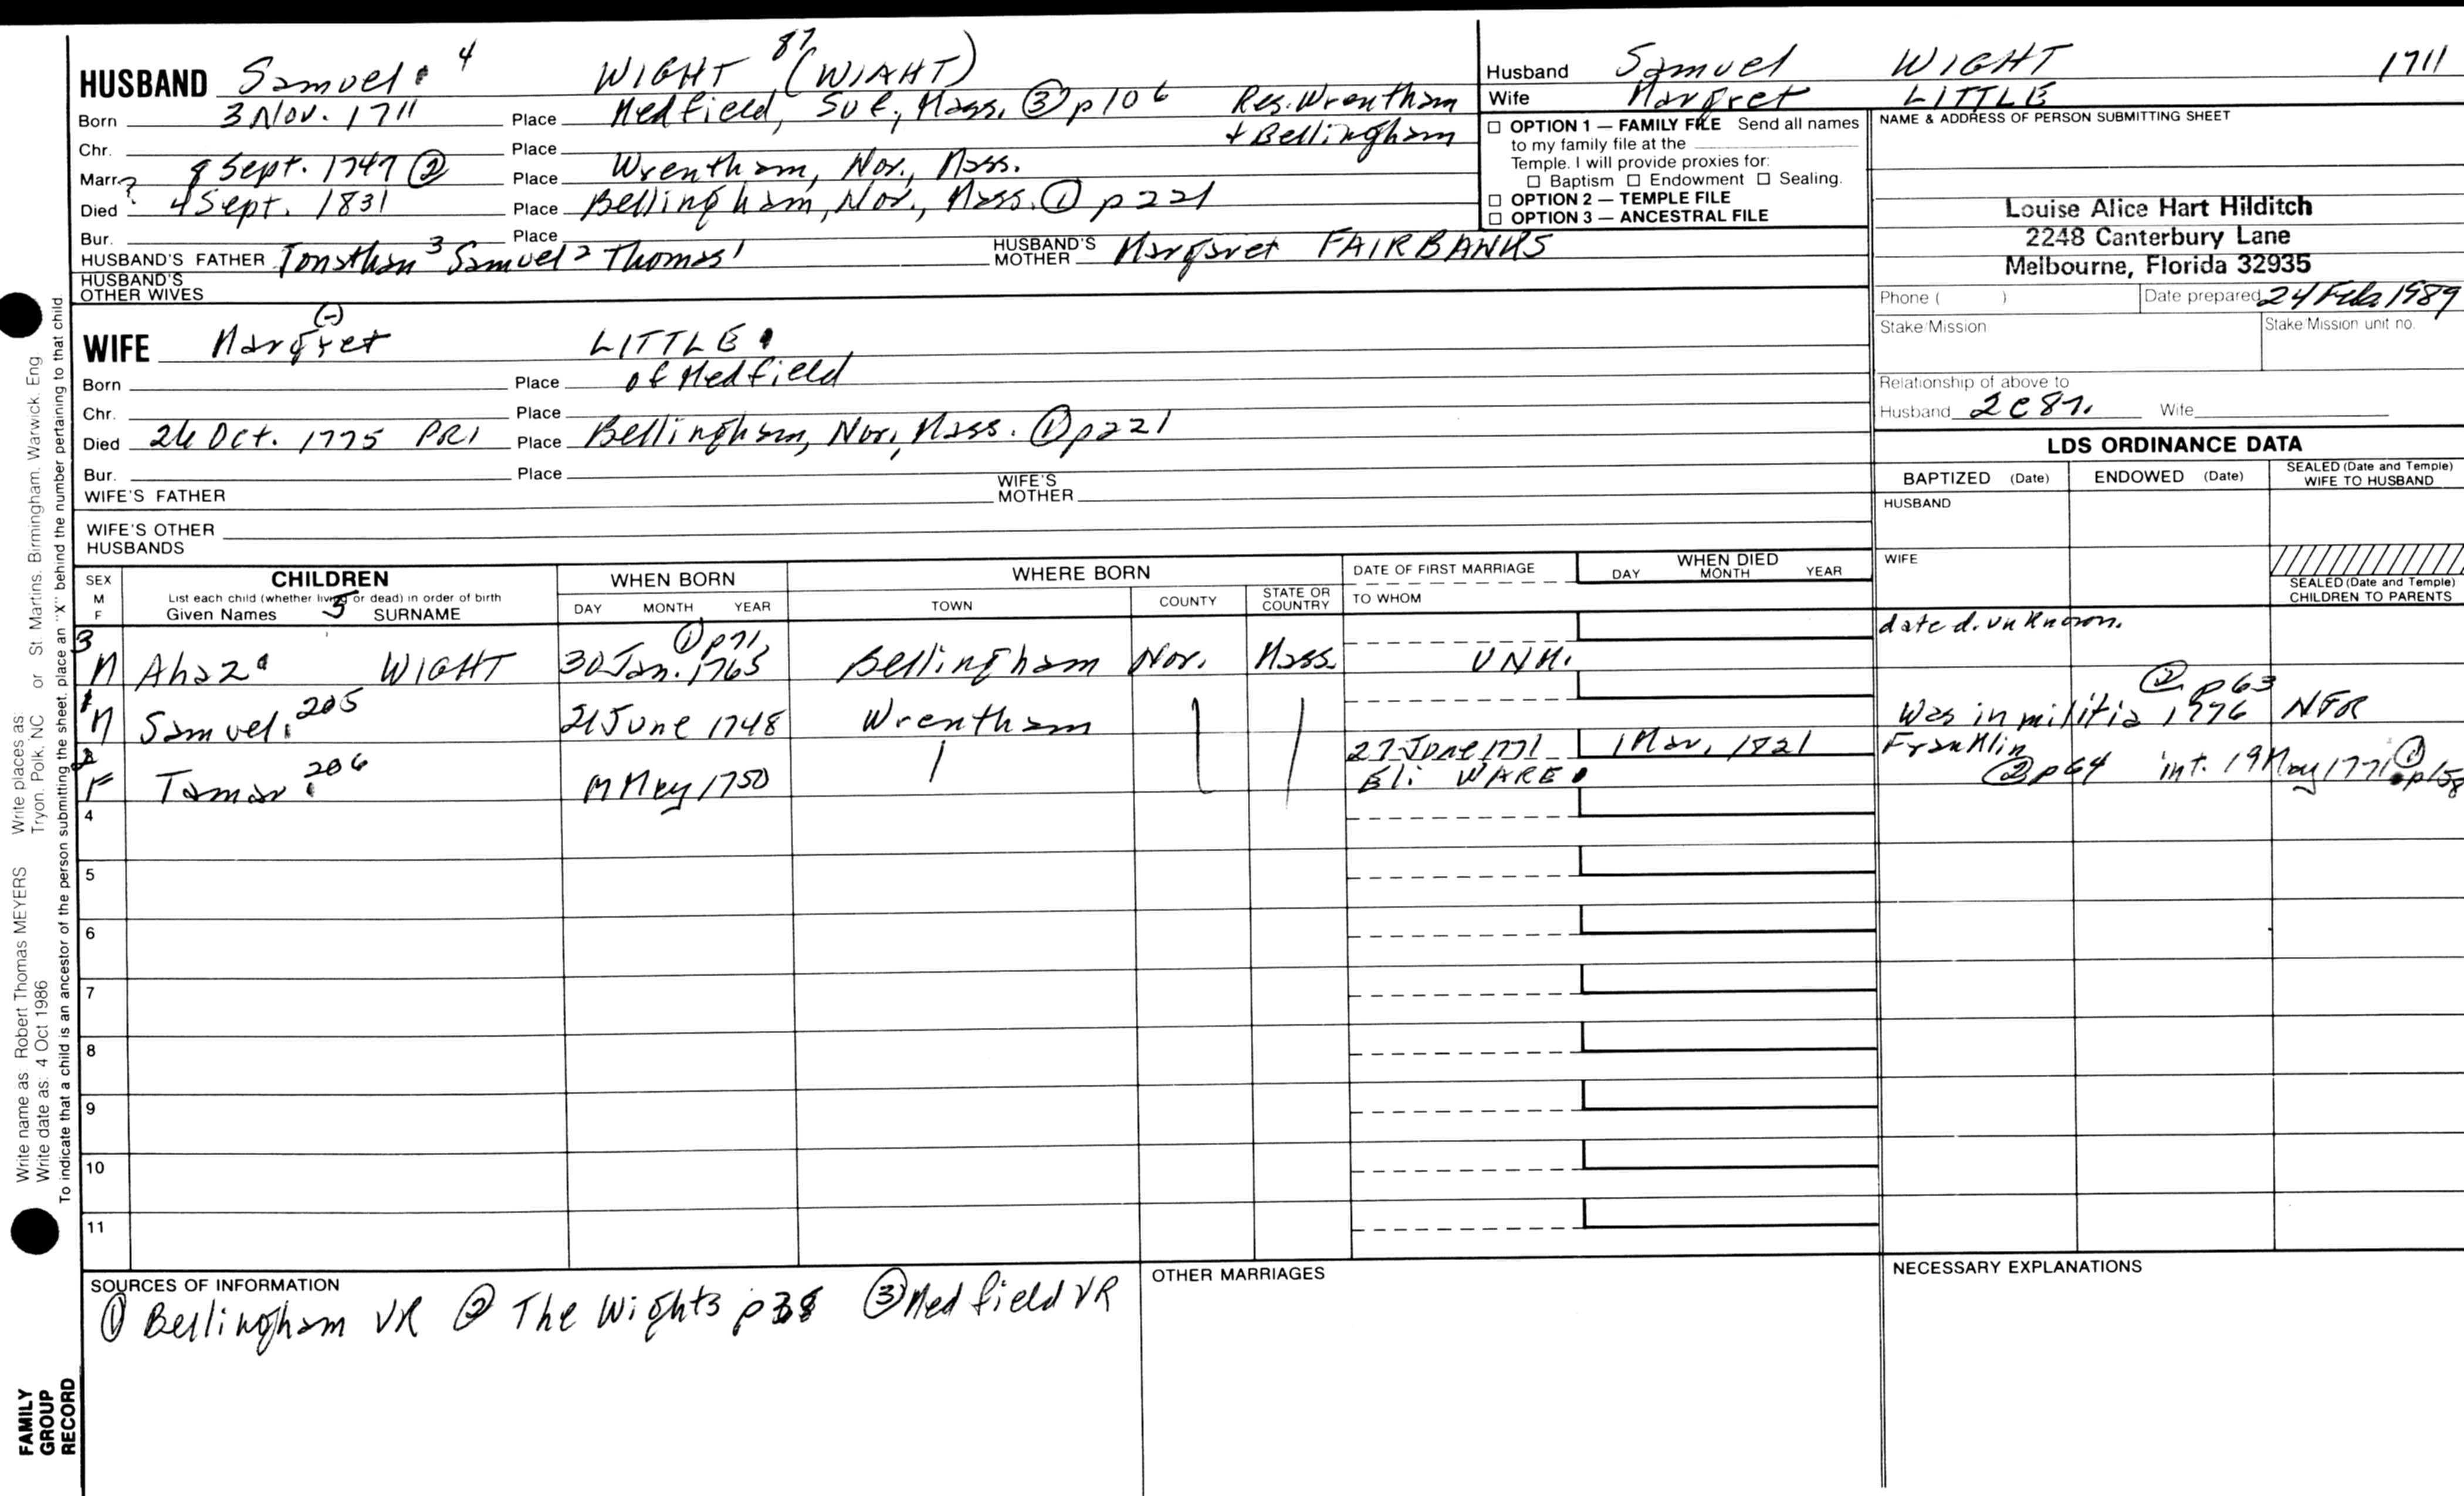 HUSBAND Samuel 4 WIGHT 87 (WIAHT)
Born 3 Nov. 1711 Place Medfield, Suf., Mass. ③ p106 Res. Wrentham
& Bellingham
Chr. Place
Marr. 8 Sept. 1747 ② Place Wrentham, Nor., Mass.
Died ? 4 Sept. 1831 Place Bellingham, Nor., Mass. ① p221
Bur. Place
HUSBAND'S FATHER Jonathan 3 Samuel 2 Thomas 1 HUSBAND'S MOTHER Margaret FAIRBANKS
HUSBAND'S
OTHER WIVES
Husband Samuel WIGHT 1711
Wife Margret LITTLE
☐ OPTION 1 — FAMILY FILE Send all names
to my family file at the
Temple. I will provide proxies for:
☐ Baptism ☐ Endowment ☐ Sealing.
☐ OPTION 2 — TEMPLE FILE
☐ OPTION 3 — ANCESTRAL FILE
NAME & ADDRESS OF PERSON SUBMITTING SHEET
Louise Alice Hart Hilditch
2248 Canterbury Lane
Melbourne, Florida 32935
Phone ( ) Date prepared 24 Feb. 1989
Stake/Mission Stake/Mission unit no.
Relationship of above to
Husband 2C8r. Wife
WIFE Margret (-) LITTLE
Born Place of Medfield
Chr. Place
Died 26 Oct. 1775 PR1 Place Bellingham, Nor., Mass. ① p221
Bur. Place
WIFE'S FATHER WIFE'S MOTHER
WIFE'S OTHER
HUSBANDS
LDS ORDINANCE DATA
BAPTIZED (Date) ENDOWED (Date) SEALED (Date and Temple) WIFE TO HUSBAND
HUSBAND
WIFE
SEALED (Date and Temple) CHILDREN TO PARENTS
SEX M F CHILDREN
List each child (whether living or dead) in order of birth
Given Names 5 SURNAME
WHEN BORN
DAY MONTH YEAR
WHERE BORN
TOWN COUNTY STATE OR COUNTRY
DATE OF FIRST MARRIAGE
TO WHOM
WHEN DIED
DAY MONTH YEAR
3 M Ahaz WIGHT 30 Jan. 1765 ① p71 Bellingham Nor. Mass. UNM. date d. unknown.
1 M Samuel 205 21 June 1748 Wrentham Was in militia 1776 ② p63 NFR
2 F Tamar 206 May 1750 27 June 1771 Eli WARE 1 Mar. 1821 Franklin ② p64 int. 19 May 1771 ① p158
4
5
6
7
8
9
10
11
SOURCES OF INFORMATION
① Bellingham VR ② The Wights p38 ③ Medfield VR
OTHER MARRIAGES
NECESSARY EXPLANATIONS
Write name as Robert Thomas MEYERS Write places as: Tryon, Polk, NC or St. Martins, Birmingham, Warwick, Eng
Write date as: 4 Oct 1986
To indicate that a child is an ancestor of the person submitting the sheet, place an "X" behind the number pertaining to that child.
FAMILY
GROUP
RECORD